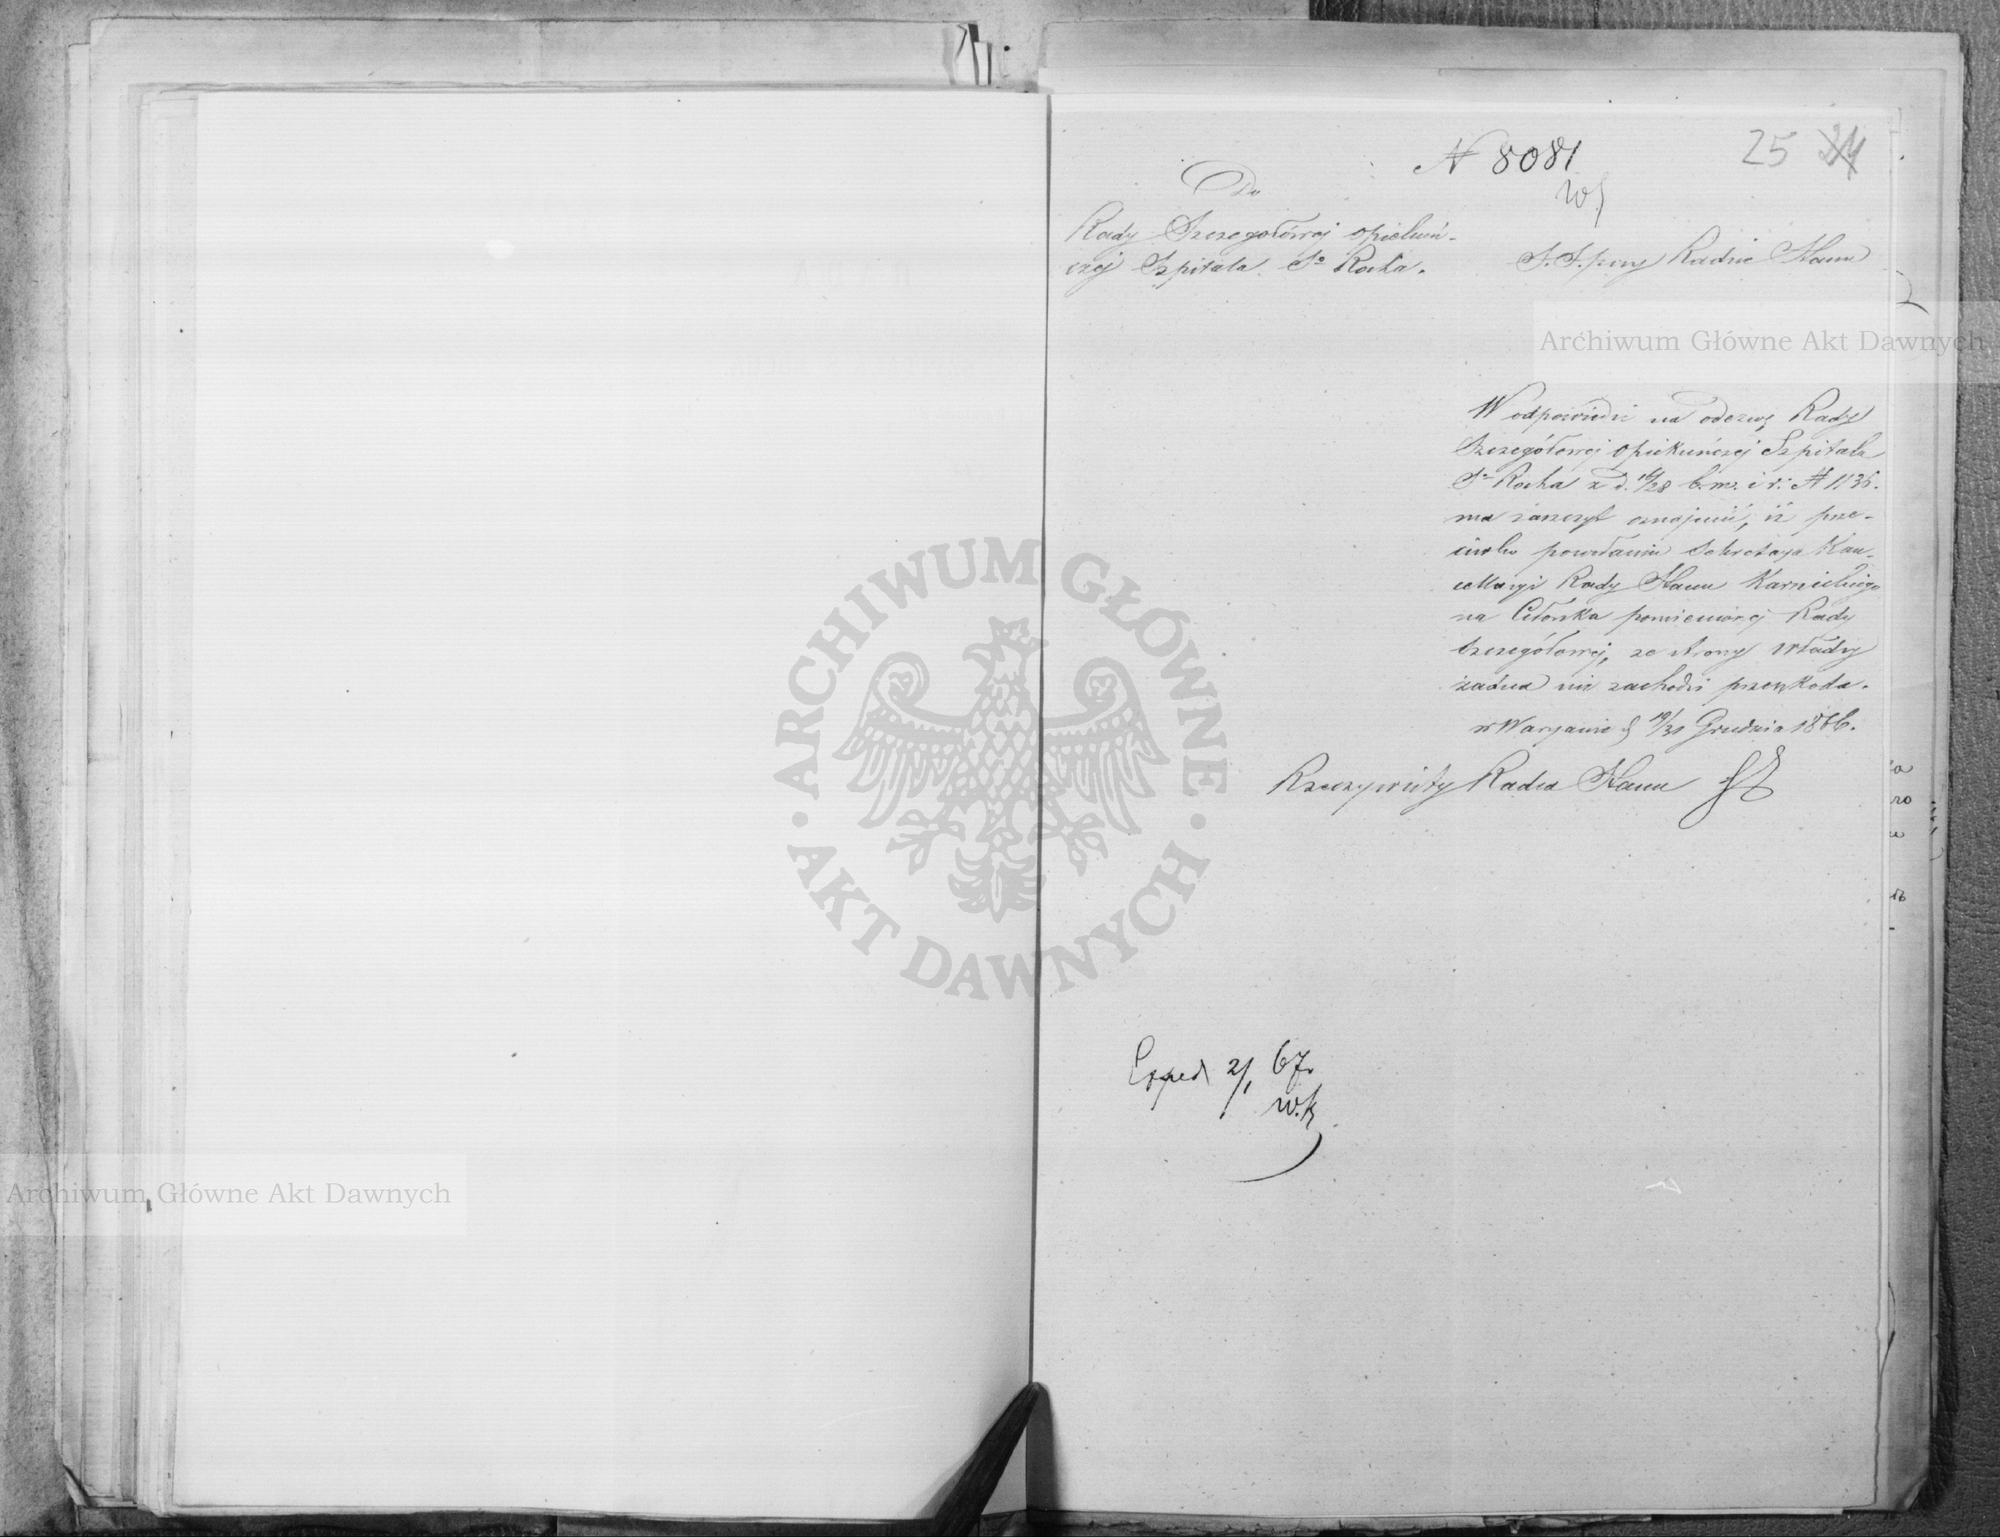 N 8081
25 24
W
Do
Rady Szczegołówej opiekuń-
czej Szpitala Sº Rocha.
S. S. przy Radzie Stanu
W odpowiedzi na odezwę Rady
Szczegółowej opiekuńczej Szpitala
Sº Rocha z d. 16/28 b. m. i r. N 1136.
ma zaszczyt oznajmić, iż prze-
ciwko powołaniu Sekretarza Kan-
cellaryi Rady Stanu Karnickiego
na Członka pomienionej Rady
Szczegółowej, ze strony Władzy
żadna nie zachodzi przeszkoda.
w Warszawie d 19/31 Grudnia 1866.
Rzeczywisty Radca Stanu
Exped 2/1 67.
W.K.
Archiwum Główne Akt Dawnych
ARCHIWUM GŁÓWNE
· AKT DAWNYCH ·
Archiwum Główne Akt Dawnych